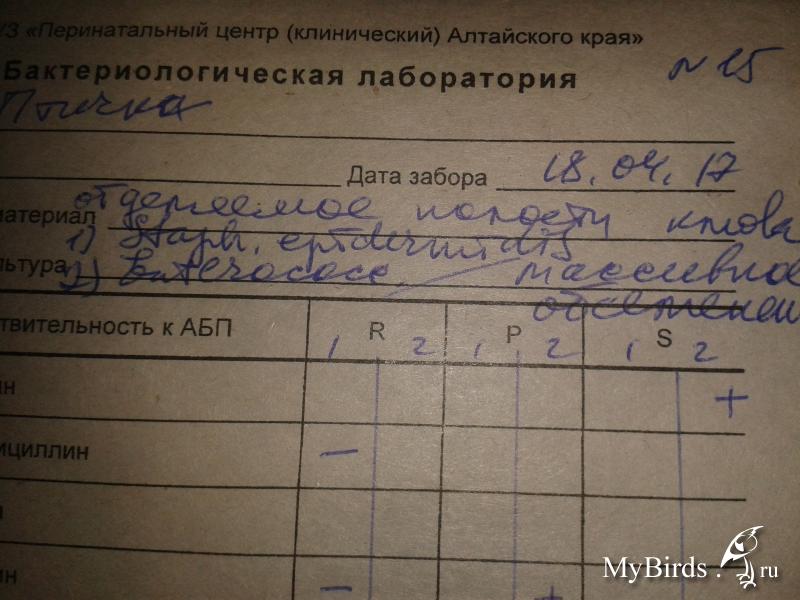 УЗ «Перинатальный центр (клинический) Алтайского края»
Бактериологическая лаборатория
N 15
Птичка
Дата забора 18.04.17
материал отделяемое полости клюва
1) Staph. epidermidis
льтура 2) Enterococc массивное
обсеменен
ствительность к АБП R P S
1 2 1 2 1 2
ин +
ициллин −
ин − +
MyBirds.ru